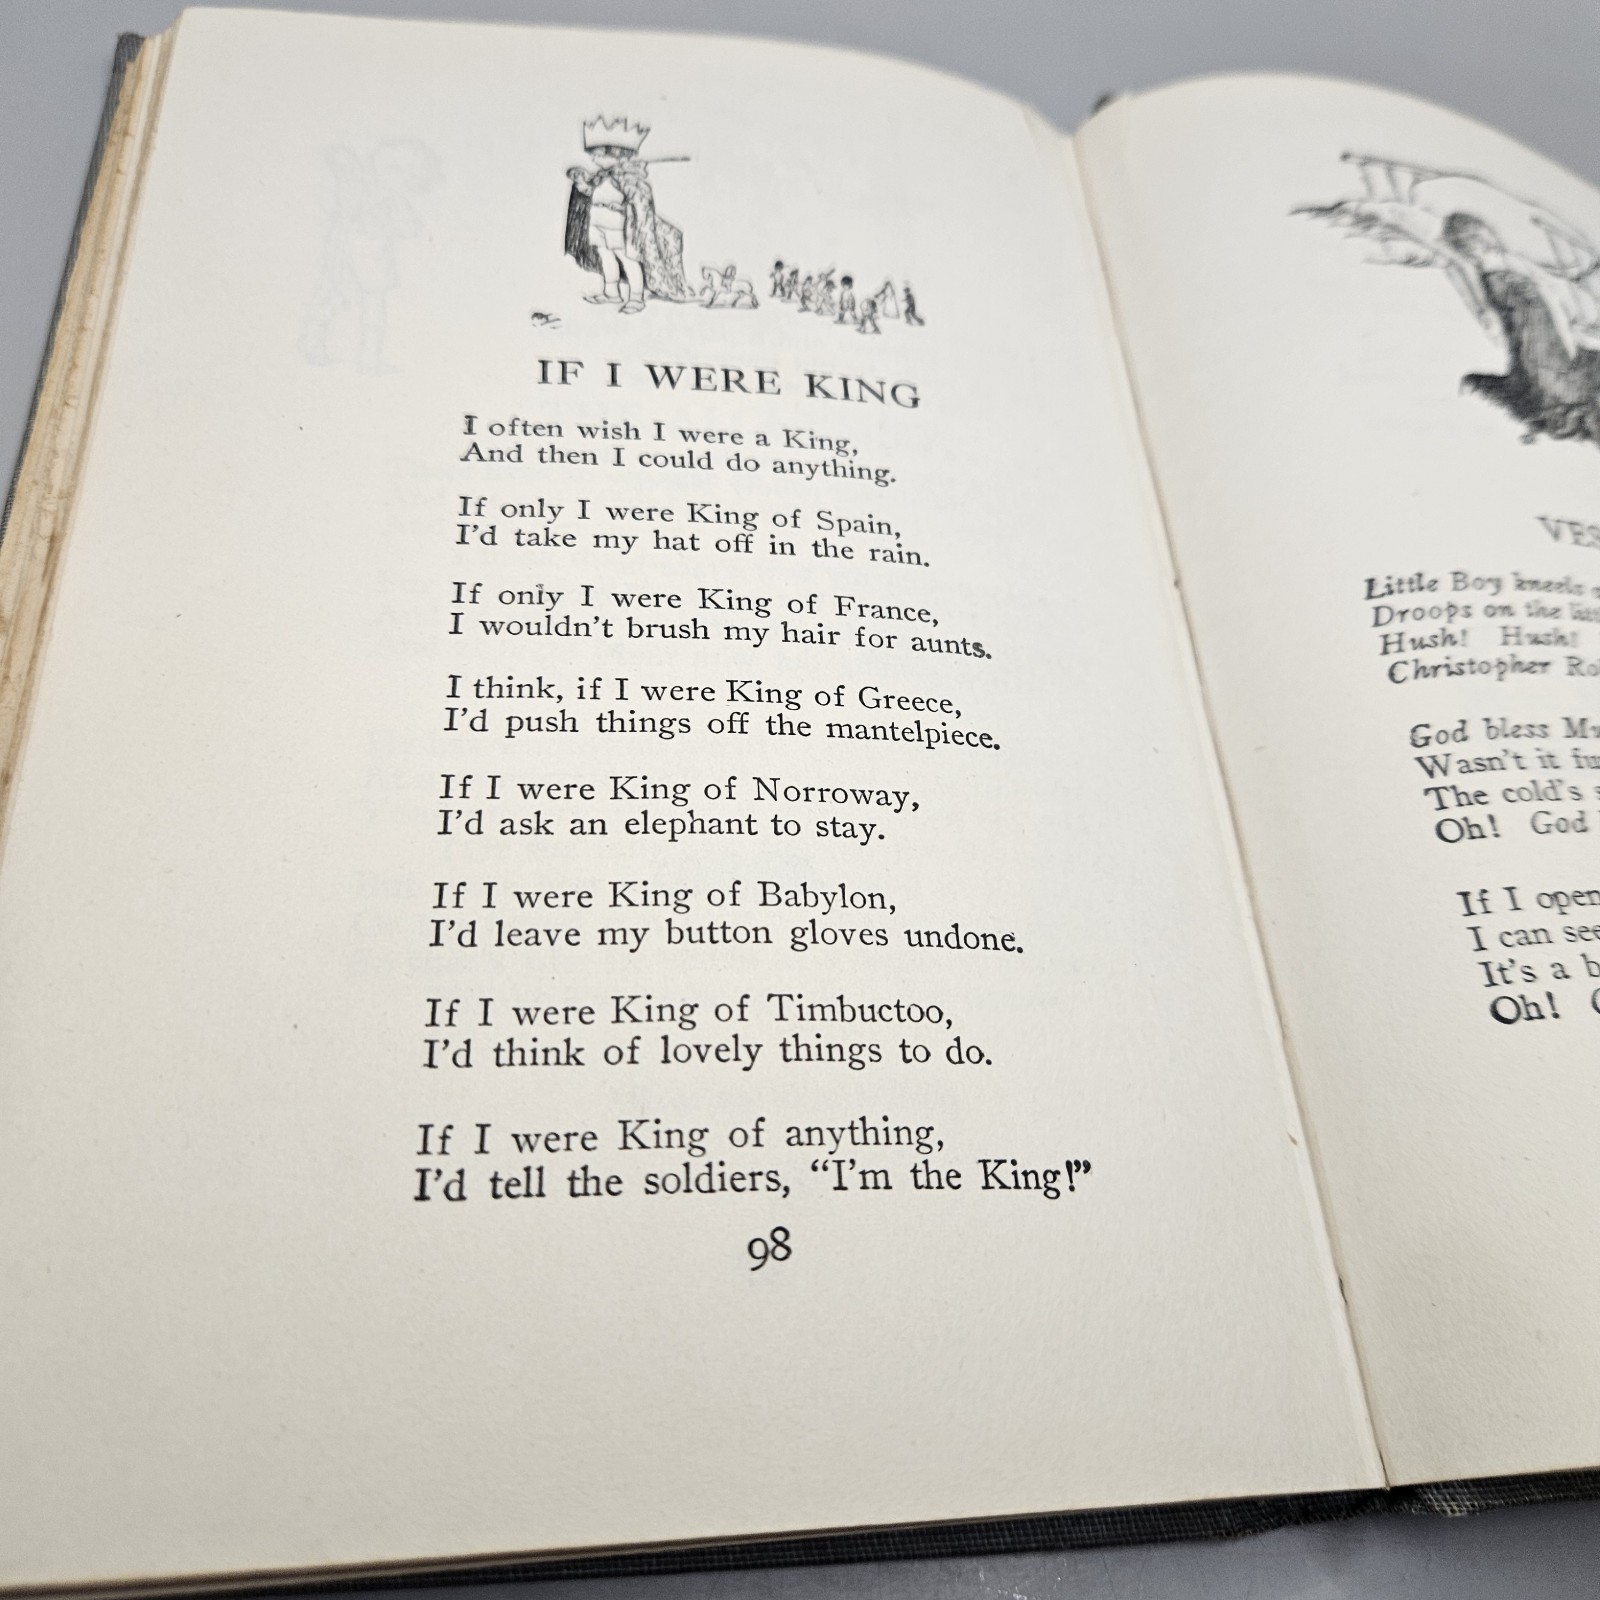 IF I WERE KING
I often wish I were a King,
And then I could do anything.
If only I were King of Spain,
I'd take my hat off in the rain.
If only I were King of France,
I wouldn't brush my hair for aunts.
I think, if I were King of Greece,
I'd push things off the mantelpiece.
If I were King of Norroway,
I'd ask an elephant to stay.
If I were King of Babylon,
I'd leave my button gloves undone.
If I were King of Timbuctoo,
I'd think of lovely things to do.
If I were King of anything,
I'd tell the soldiers, “I'm the King!”
98
Little Boy kneels
Droops on the
Hush! Hush!
Christopher
God bless
Wasn't it
The cold's
Oh! God
If I open
I can see
It's a
Oh!